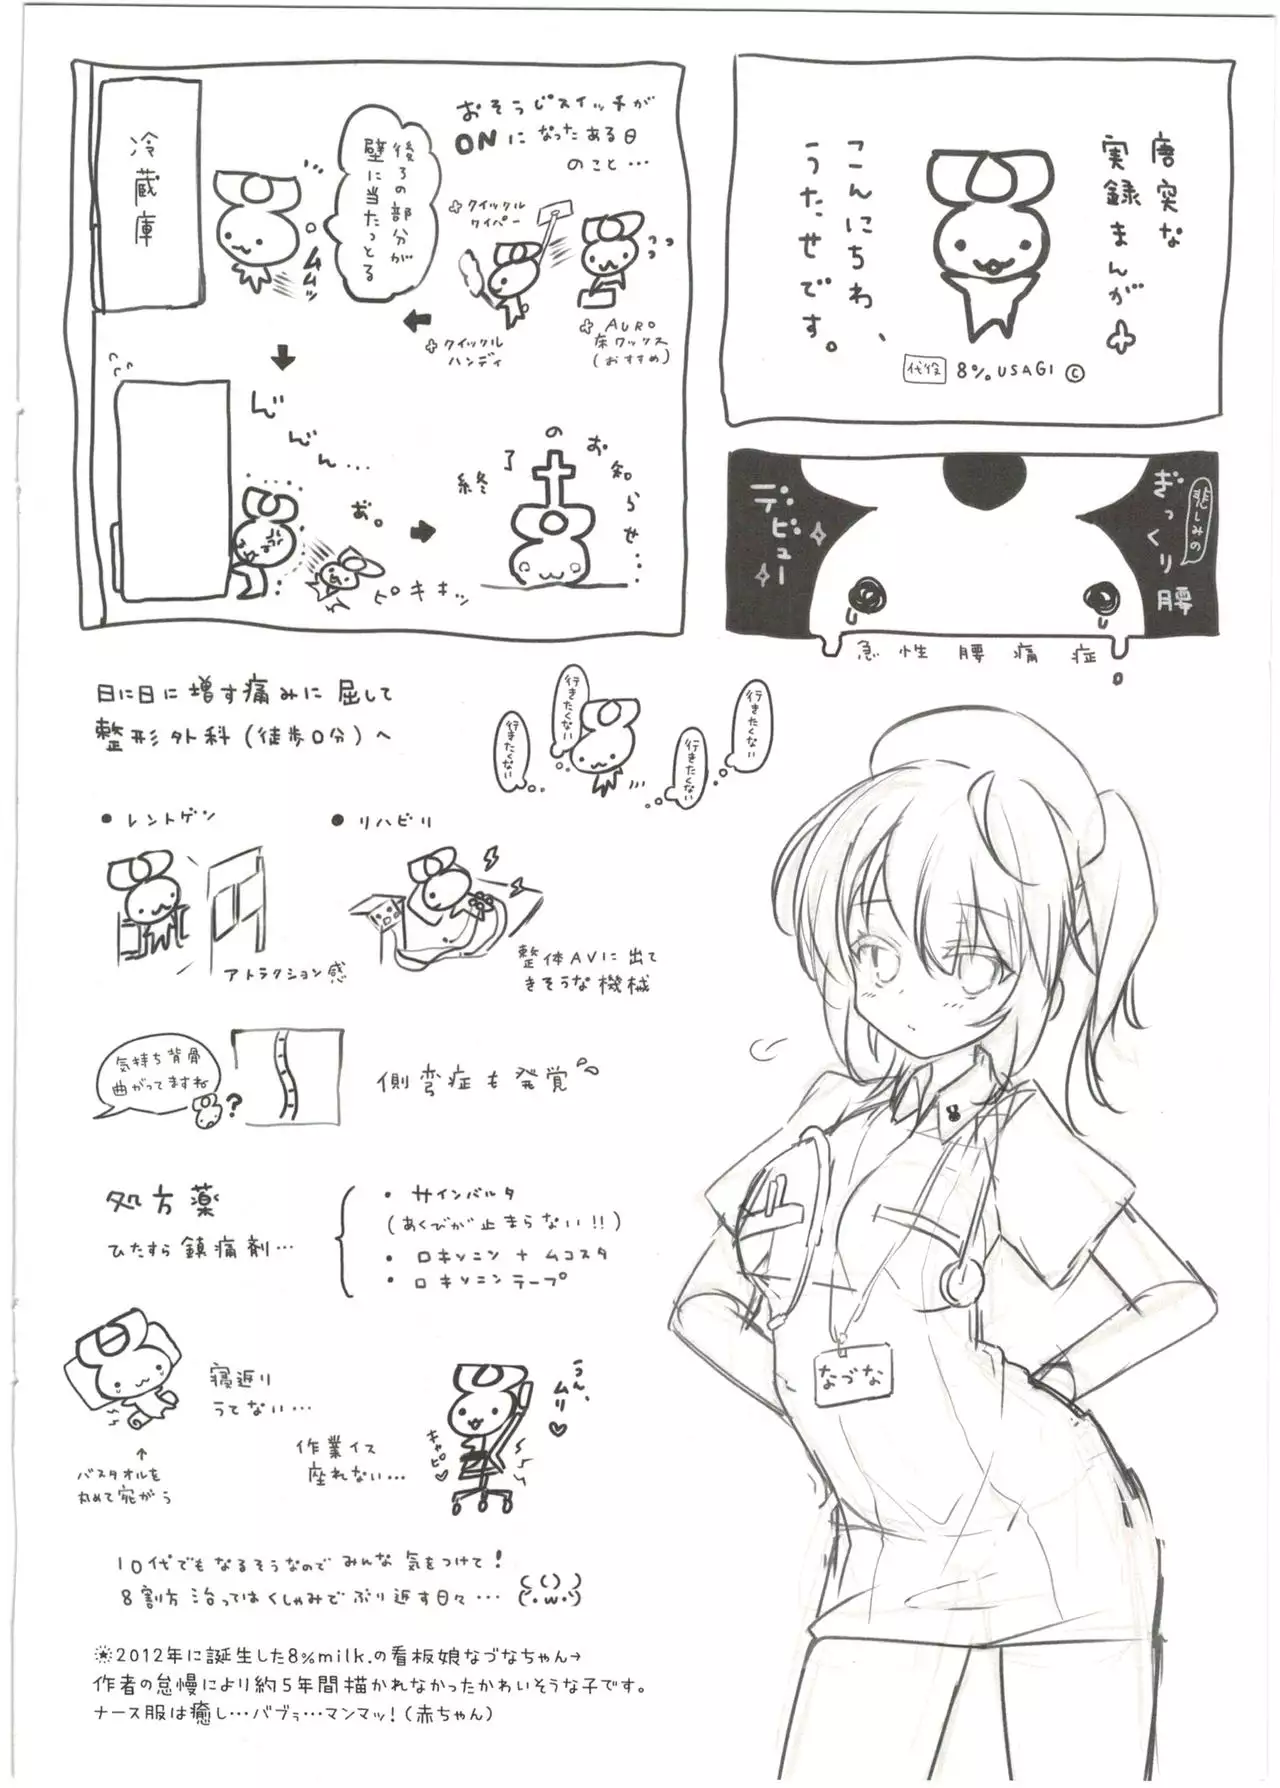 唐突な
実録まんが
こんにちわ、
うたせです。
代役 8%USAGI ©
悲しみの
ぎっくり腰
デビュー
急性腰痛症
おそうじスイッチが
ONになったある日
のこと…
クイックル
ワイパー
AURO
床ワックス
(おすすめ)
クイックル
ハンディ
後ろの部分が
壁に当たっとる
ムムッ
冷蔵庫
ん゙ん゙ん…
あ。
ピキキッ
終了のお知らせ…
日に日に増す痛みに屈して
整形外科(徒歩0分)へ
行きたくない
行きたくない
行きたくない
行きたくない
●レントゲン
アトラクション感
●リハビリ
整体AVに出て
きそうな機械
気持ち背骨
曲がってますね
?
側弯症も発覚
処方薬
ひたすら鎮痛剤…
・サインバルタ
(あくびが止まらない!!)
・ロキソニン+ムコスタ
・ロキソニンテープ
寝返り
うてない…
↑
バスタオルを
丸めて宛がう
作業イス
座れない…
キャピ♡
うん、
ムリ♡
10代でもなるそうなのでみんな気をつけて!
8割方治ってはくしゃみでぶり返す日々…
(・w・)
※2012年に誕生した8%milk.の看板娘なづなちゃん→
作者の怠慢により約5年間描かれなかったかわいそうな子です。
ナース服は癒し…バブゥ…マンマッ!(赤ちゃん)
なづな